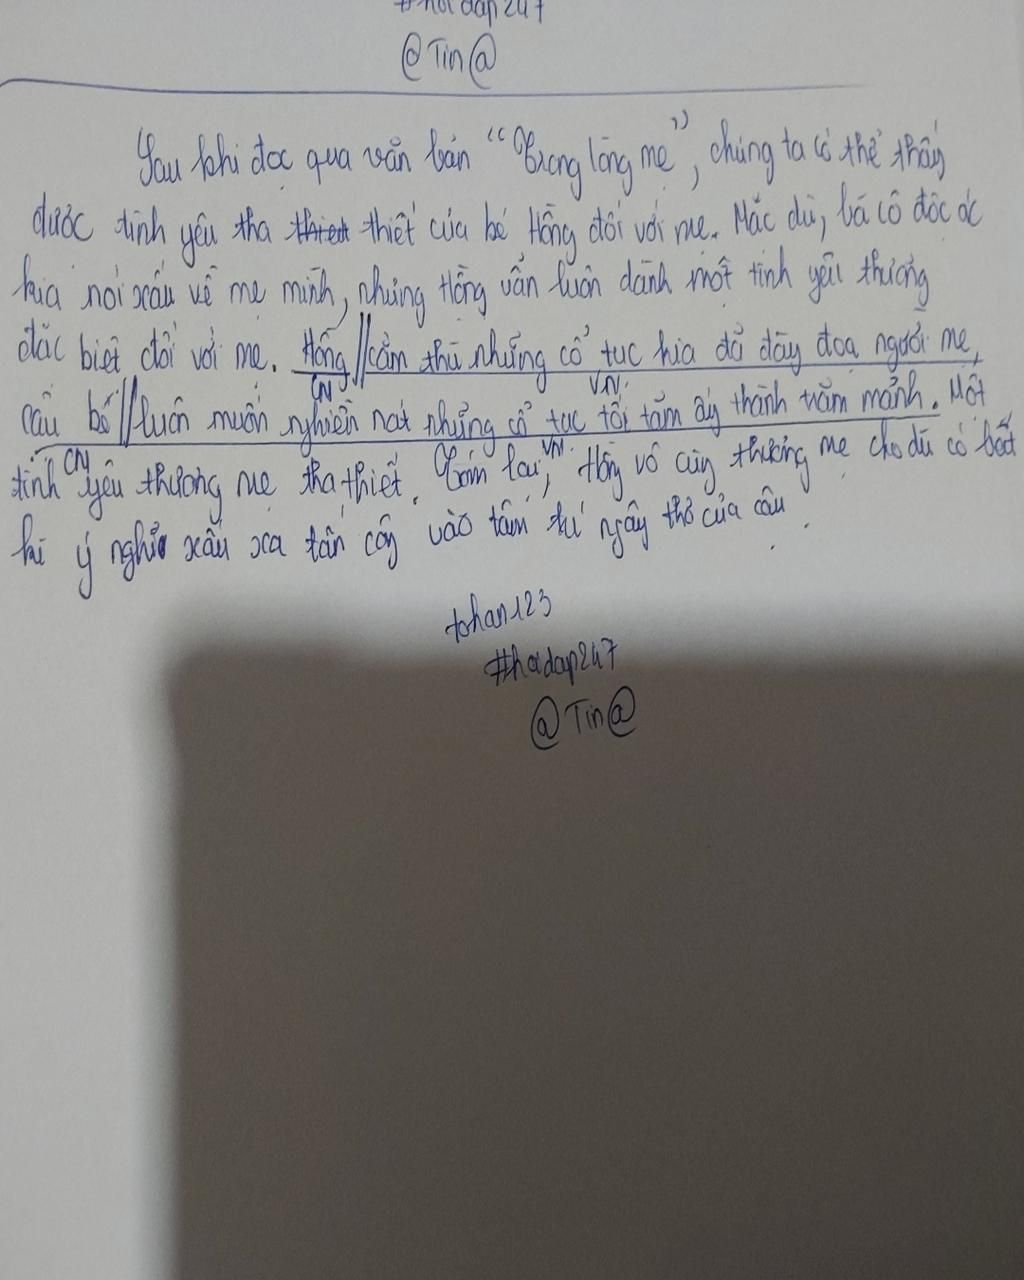 #hoidap247
@Tin@
Sau khi đọc qua văn bản "Trong lòng mẹ", chúng ta có thể thấy
được tình yêu tha thiết thiết của bé Hồng đối với mẹ. Mặc dù, bà cô độc ác
kia nói xấu về mẹ mình, nhưng Hồng vẫn luôn dành một tình yêu thương
đặc biệt đối với mẹ. Hồng//căm thù những cổ tục kia đã đày đoạ người mẹ,
CN VN
cậu bé//luôn muốn nghiền nát những cổ tục tồi tàm ấy thành trăm mảnh. Một
CN VN
tình yêu thương mẹ tha thiết. Tóm lại, Hồng vô cùng thương mẹ cho dù có bất
kì ý nghĩ xấu xa tấn công vào tâm trí ngây thơ của cậu.
tohan123
#hoidap247
@Tin@